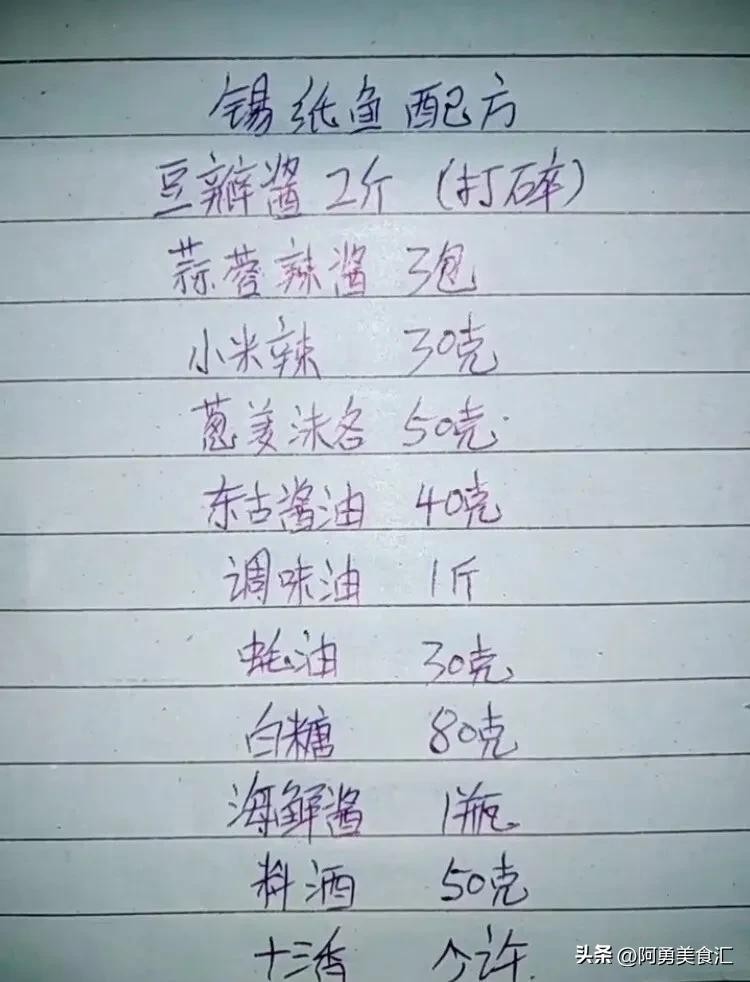 锡纸鱼配方
豆瓣酱 2斤 (打碎)
蒜蓉辣酱 3包
小米辣 30克
葱姜沫各 50克
东古酱油 40克
调味油 1斤
蚝油 30克
白糖 80克
海鲜酱 1瓶
料酒 50克
十三香 少许
头条 @阿勇美食汇